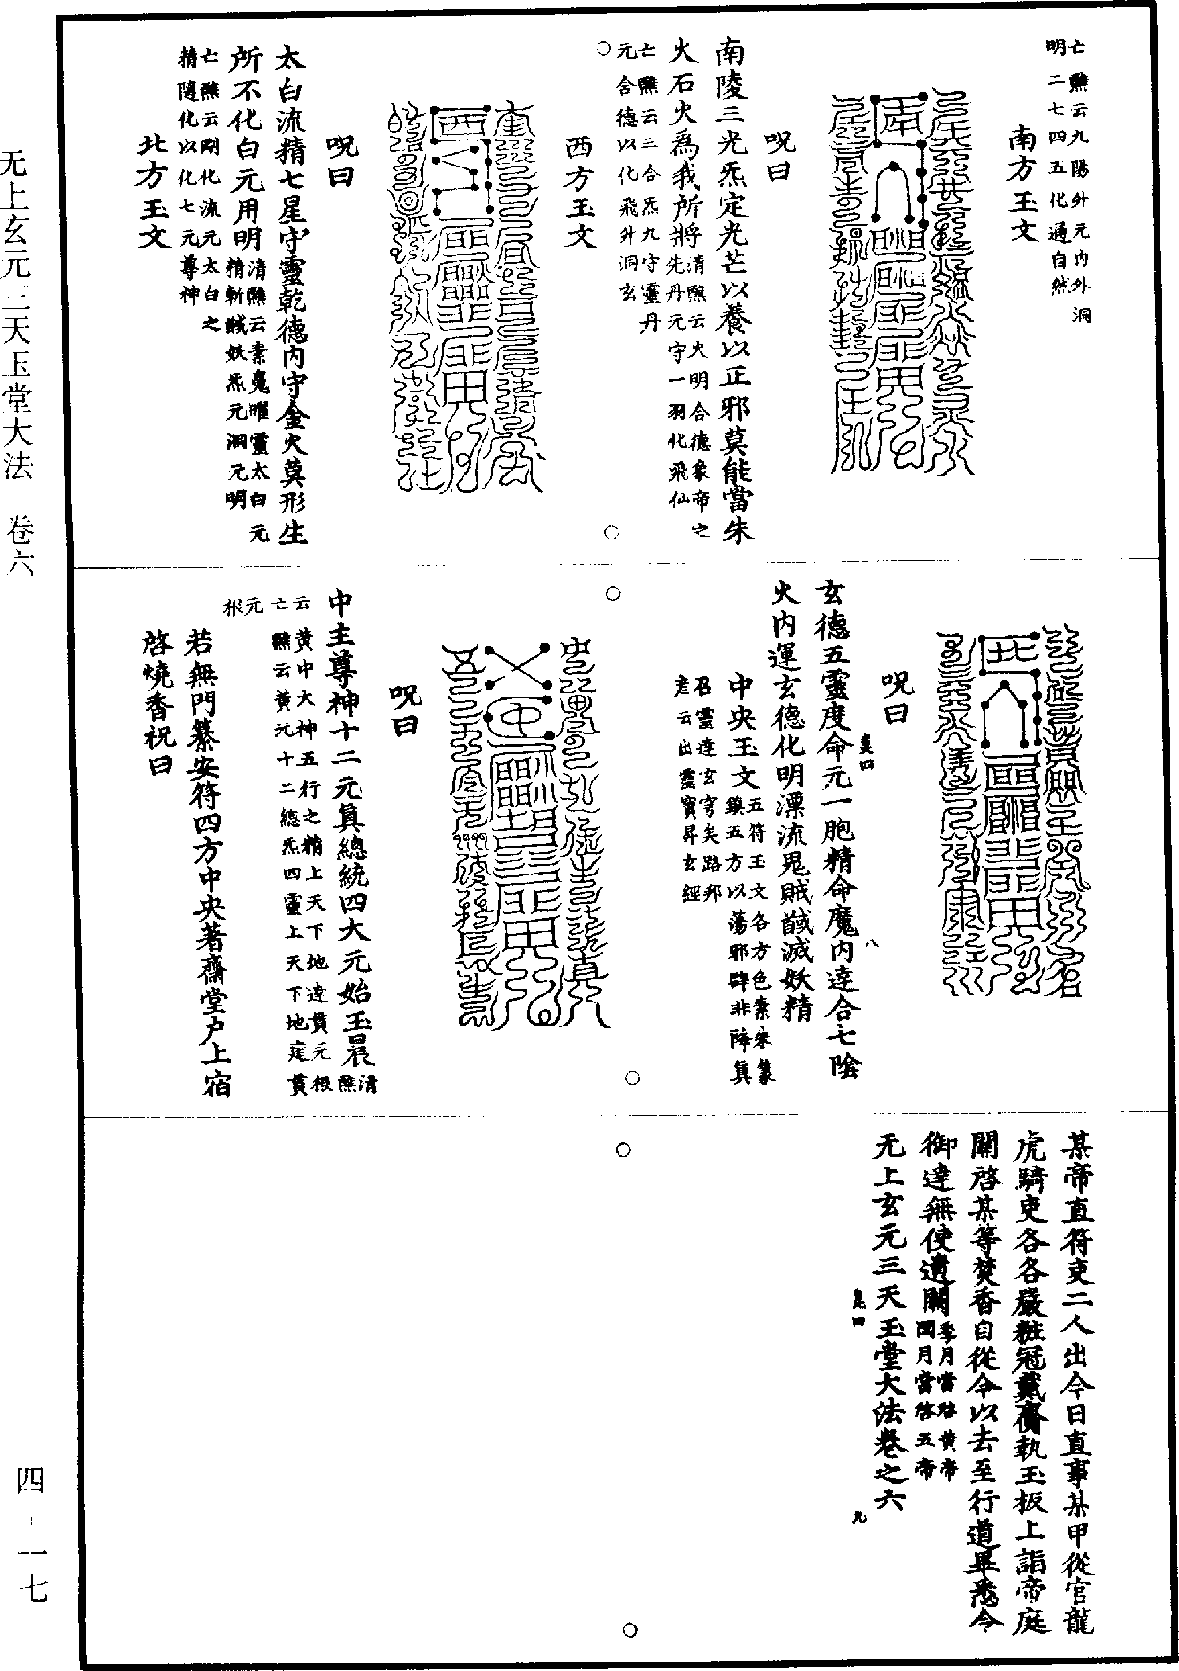 无上玄元三天玉堂大法　卷六
四
一七
亡熙云九陽外元内外洞
明二七四五化通自然
南方玉文
呪曰
南陵三光炁定光芒以養以正邪莫能當朱
火石火爲我所將
清熙云火明合德象帝之
先丹元守一羽化飛仙
亡熙云三合炁九守靈丹
元合德以化飛升洞玄
西方玉文
呪曰
太白流精七星守靈乾德内守金火莫形生
所不化白元用明
清熙云素魔曜靈太白元
精斬賊妖炁元洞元明
亡熙云剛化流元太白之
精隨化以化七元尊神
北方玉文
呪曰
玄德五靈度命元一胞精命魔内達合七陰
火内運玄德化明漂流鬼賊馘滅妖精
中央玉文
五符玉文各方色素朱篆
鎮五方以蕩邪辟非降真
召靈達玄穹矣路邦
彦云出靈寶昇玄經
呪曰
中主尊神十二元真總統四大元始玉晨
清熙
云黄中大神五行之精上天下地達黄元根
亡熙云黄元十二總炁四靈上天下地
黄元根
若無門纂安符四方中央著齋堂户上宿
啓燒香祝曰
某帝直符吏二人出今日直事某甲從官龍
虎騎吏各各嚴粧冠戴齎執玉板上詣帝庭
關啓某等焚香自從今以去至行道畢悉令
御達無使遺闕
季月當啓黄帝
閏月當啓五帝
无上玄元三天玉堂大法卷之六
八
九